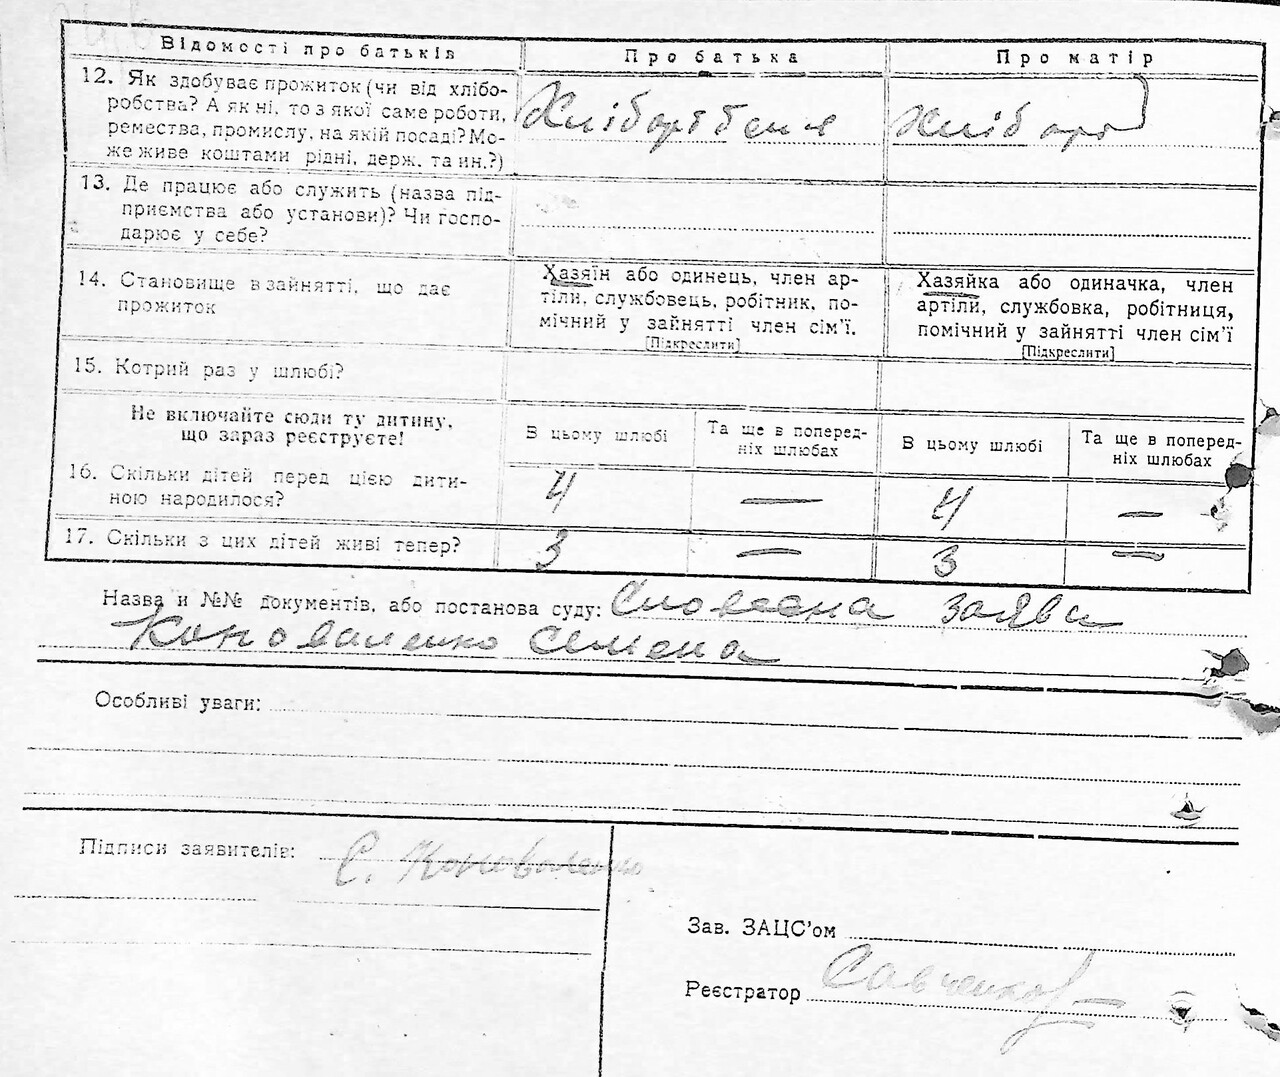 Відомості про батьків Про батька Про матір
12. Як здобуває прожиток (чи від хлібо-
робства? А як ні, то з якої саме роботи,
ремества, промислу, на якій посаді? Мо-
же живе коштами рідні, держ. та ин.?)
Хліборобства
Хлібороб
13. Де працює або служить (назва під-
приємства або установи)? Чи госпо-
дарює у себе?
14. Становище в зайнятті, що дає
прожиток
Хазяїн або одинець, член ар-
тіли, службовець, робітник, по-
мічний у зайнятті член сім'ї.
[Підкреслити]
Хазяйка або одиначка, член
артіли, службовка, робітниця,
помічний у зайнятті член сім'ї
[Підкреслити]
15. Котрий раз у шлюбі?
Не включайте сюди ту дитину,
що зараз реєструєте!
В цьому шлюбі
Та ще в поперед-
ніх шлюбах
В цьому шлюбі
Та ще в поперед-
ніх шлюбах
16. Скільки дітей перед цією дити-
ною народилося?
4 — 4 —
17. Скільки з цих дітей живі тепер? 3 — 3 —
Назва и №№ документів, або постанова суду: Словесна заява
Коноваленко Семена
Особливі уваги:
Підписи заявителів: С. Коноваленко
Зав. ЗАЦС'ом
Реєстратор Савченко